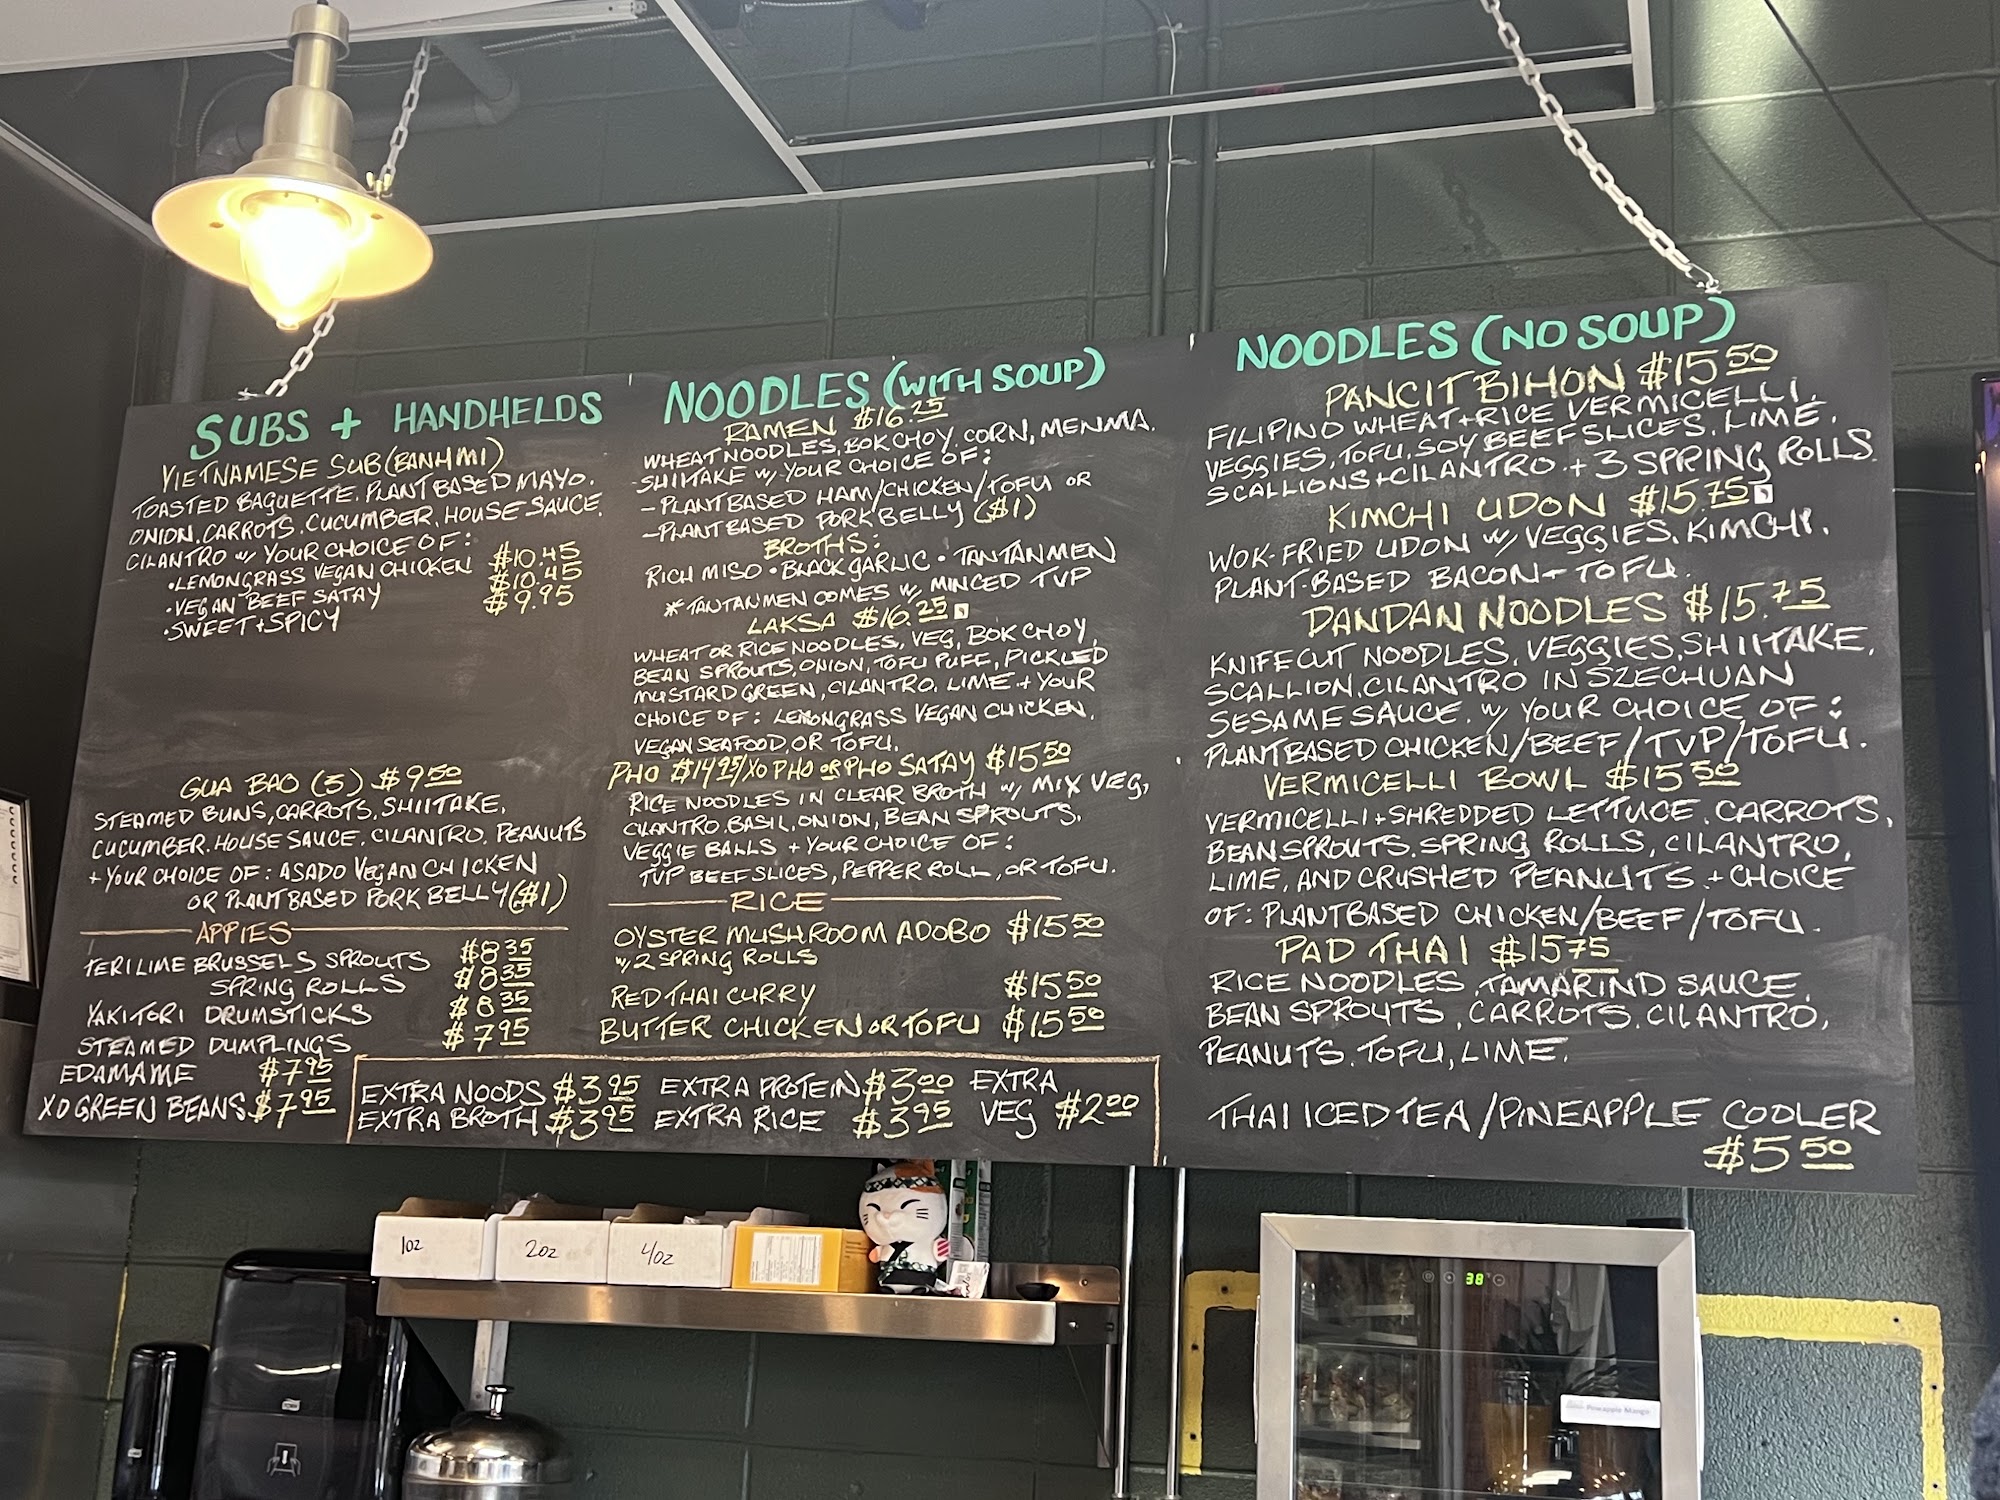 SUBS + HANDHELDS
VIETNAMESE SUB (BANH MI)
TOASTED BAGUETTE, PLANT BASED MAYO,
ONION, CARROTS, CUCUMBER, HOUSE SAUCE,
CILANTRO w/ YOUR CHOICE OF:
• LEMONGRASS VEGAN CHICKEN $10.45
• VEGAN BEEF SATAY $10.45
• SWEET + SPICY $9.95
GUA BAO (3) $9.50
STEAMED BUNS, CARROTS, SHIITAKE,
CUCUMBER, HOUSE SAUCE, CILANTRO, PEANUTS
+ YOUR CHOICE OF: ASADO VEGAN CHICKEN
OR PLANT BASED PORK BELLY ($1)
APPIES
TERILIME BRUSSELS SPROUTS $8.35
SPRING ROLLS $8.35
YAKITORI DRUMSTICKS $8.35
STEAMED DUMPLINGS $7.95
EDAMAME $7.95
XO GREEN BEANS $7.95
NOODLES (WITH SOUP)
RAMEN $16.25
WHEAT NOODLES, BOK CHOY, CORN, MENMA,
SHIITAKE w/ YOUR CHOICE OF:
- PLANT BASED HAM/CHICKEN/TOFU OR
- PLANT BASED PORK BELLY ($1)
BROTHS:
RICH MISO • BLACK GARLIC • TANTANMEN
* TANTANMEN COMES w/ MINCED TVP
LAKSA $16.25
WHEAT OR RICE NOODLES, VEG, BOK CHOY,
BEAN SPROUTS, ONION, TOFU PUFF, PICKLED
MUSTARD GREEN, CILANTRO, LIME + YOUR
CHOICE OF: LEMONGRASS VEGAN CHICKEN,
VEGAN SEAFOOD, OR TOFU.
PHO $14.95/XO PHO OR PHO SATAY $15.50
RICE NOODLES IN CLEAR BROTH w/ MIX VEG,
CILANTRO, BASIL, ONION, BEAN SPROUTS,
VEGGIE BALLS + YOUR CHOICE OF:
TVP BEEF SLICES, PEPPER ROLL, OR TOFU.
RICE
OYSTER MUSHROOM ADOBO $15.50
w/ 2 SPRING ROLLS
RED THAI CURRY $15.50
BUTTER CHICKEN OR TOFU $15.50
EXTRA NOODS $3.95 EXTRA PROTEIN $3.00 EXTRA
EXTRA BROTH $3.95 EXTRA RICE $3.95 VEG $2.00
NOODLES (NO SOUP)
PANCIT BIHON $15.50
FILIPINO WHEAT + RICE VERMICELLI,
VEGGIES, TOFU, SOY BEEF SLICES, LIME,
SCALLIONS + CILANTRO + 3 SPRING ROLLS
KIMCHI UDON $15.75
WOK-FRIED UDON w/ VEGGIES, KIMCHI,
PLANT-BASED BACON + TOFU.
DANDAN NOODLES $15.75
KNIFE CUT NOODLES, VEGGIES, SHIITAKE,
SCALLION, CILANTRO IN SZECHUAN
SESAME SAUCE. w/ YOUR CHOICE OF:
PLANTBASED CHICKEN/BEEF/TVP/TOFU.
VERMICELLI BOWL $15.50
VERMICELLI + SHREDDED LETTUCE, CARROTS,
BEAN SPROUTS, SPRING ROLLS, CILANTRO,
LIME, AND CRUSHED PEANUTS + CHOICE
OF: PLANTBASED CHICKEN/BEEF/TOFU.
PAD THAI $15.75
RICE NOODLES, TAMARIND SAUCE,
BEAN SPROUTS, CARROTS, CILANTRO,
PEANUTS, TOFU, LIME.
THAI ICED TEA/PINEAPPLE COOLER
$5.50
1oz
2oz
4oz
38
Pineapple Mango